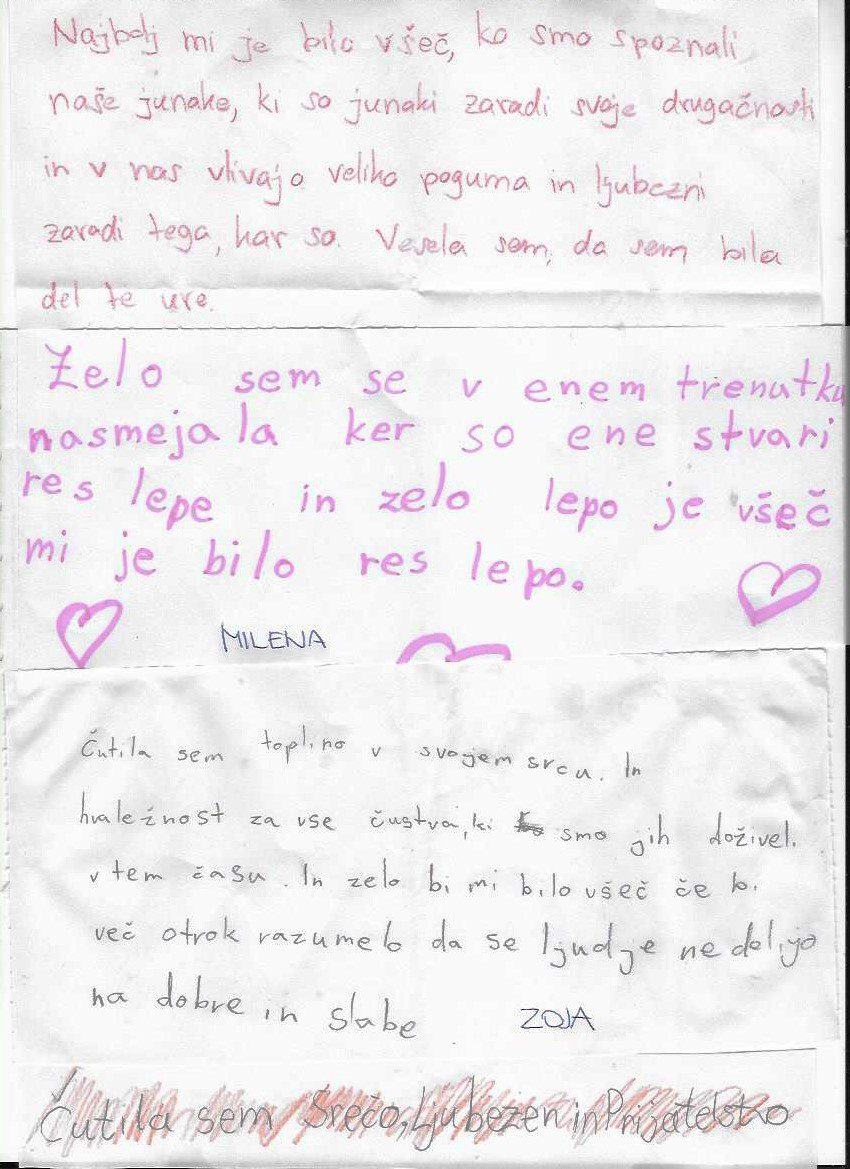 Najbolj mi je bilo všeč, ko smo spoznali
naše junake, ki so junaki zaradi svoje drugačnosti
in v nas vlivajo veliko poguma in ljubezni
zaradi tega, kar so. Vesela sem, da sem bila
del te ure.
Zelo sem se v enem trenutku
nasmejala ker so ene stvari
res lepe in zelo lepo je všeč
mi je bilo res lepo.
MILENA
Čutila sem toplino v svojem srcu. In
hvaležnost za vse čustva, ki smo jih doživeli
v tem času. In zelo bi mi bilo všeč če bi
več otrok razumelo da se ljudje ne delijo
na dobre in slabe
ZOJA
Čutila sem Srečo, Ljubezen in Prijatelstvo